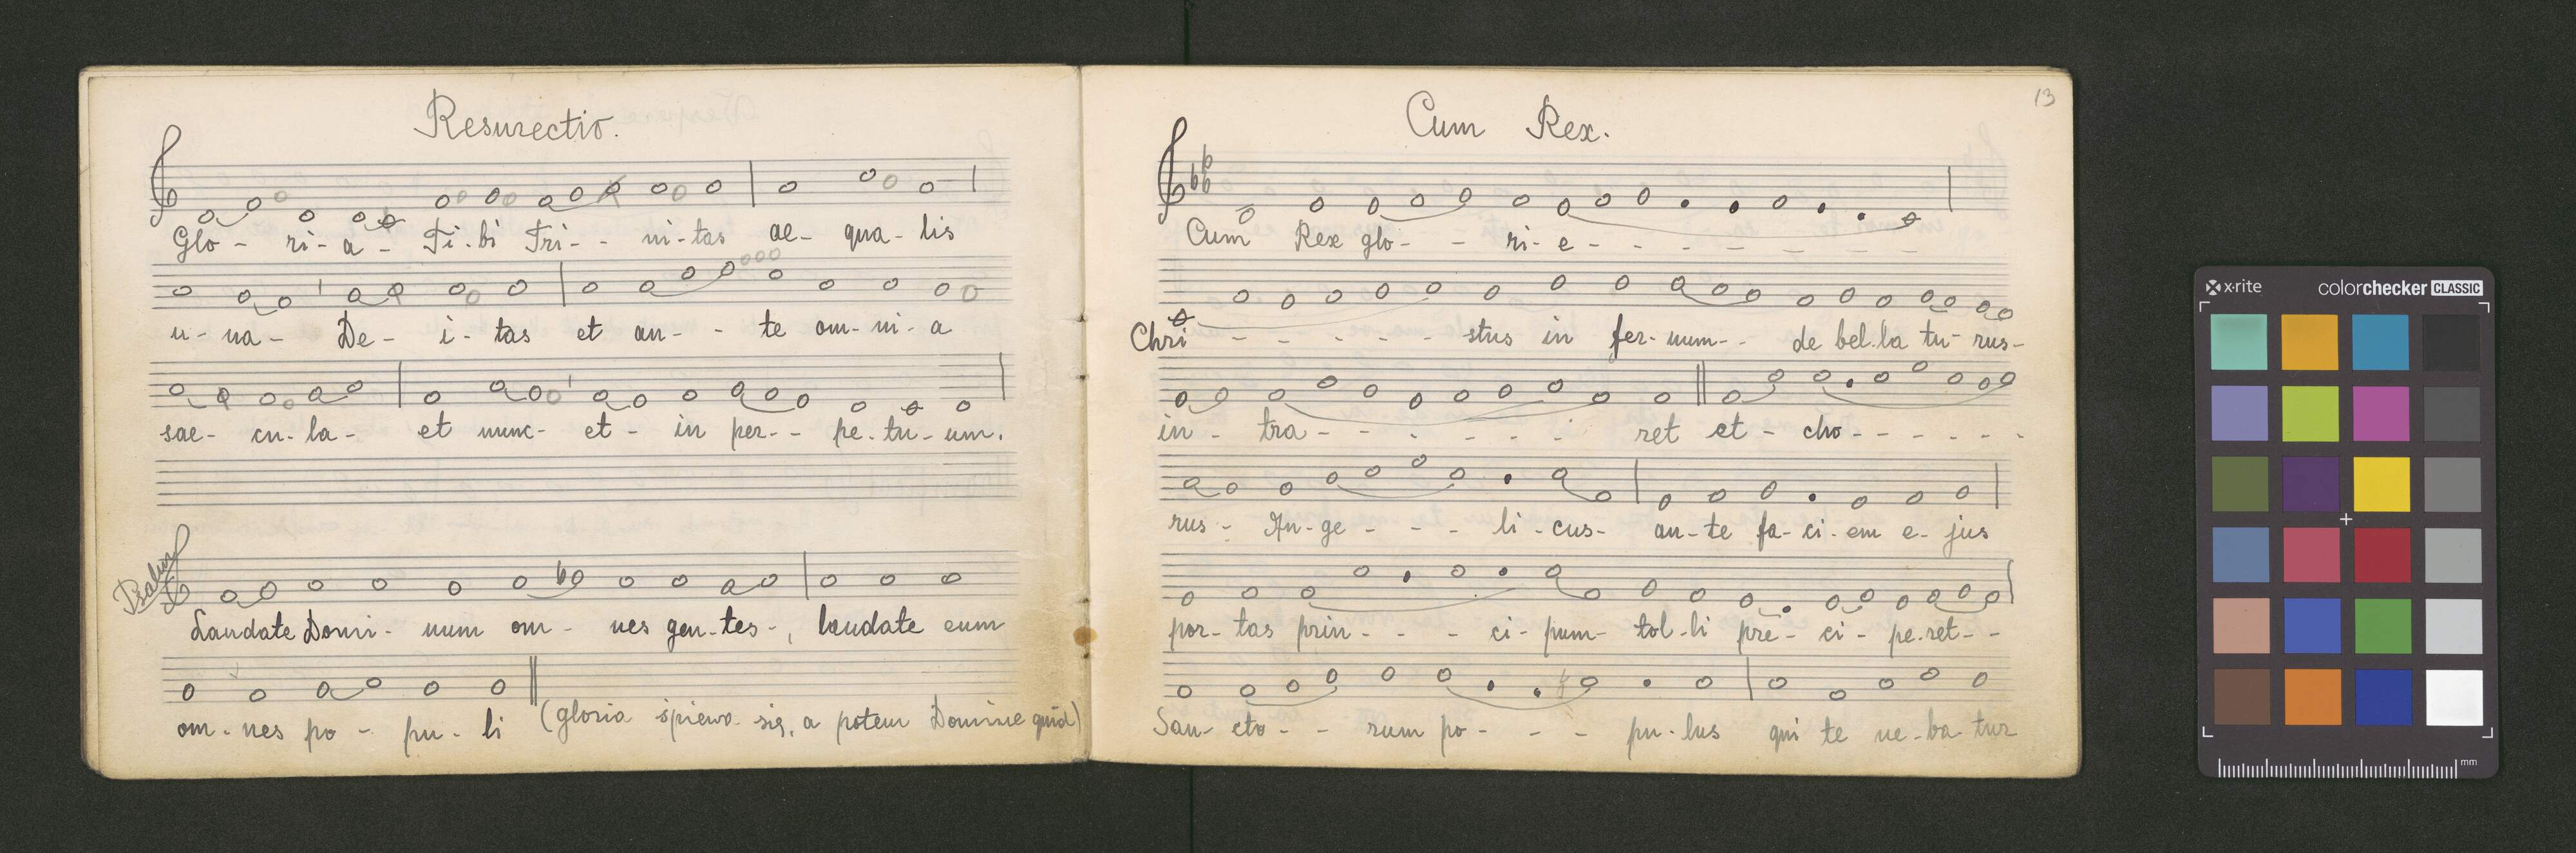 Resurectio.
Glo - ri - a - Ti - bi Tri - - ni - tas ae - qua - lis
u - na - De - i - tas et an - - te om - ni - a
sae - cu - la - et nunc - et - in per - - pe - tu - um.
Psalm
Laudate Domi - num om - nes gen - tes -, laudate eum
om - nes po - pu - li (gloria śpiewa się, a potem Domine quid)
13
Cum Rex.
Cum Rex glo - - ri - e - - - - - - - -
Chri - - - - - - stus in fer - num - - de bel - la tu - rus -
in - tra - - - - - - - ret et - cho - - - - - -
rus - An - ge - - - - li - cus - an - te fa - ci - em e - jus
por - tas prin - - - - ci - pum - tol - li pre - ci - pe - ret - -
San - cto - - rum po - - - - pu - lus qui te ne - ba - tur
x-rite
colorchecker CLASSIC
mm